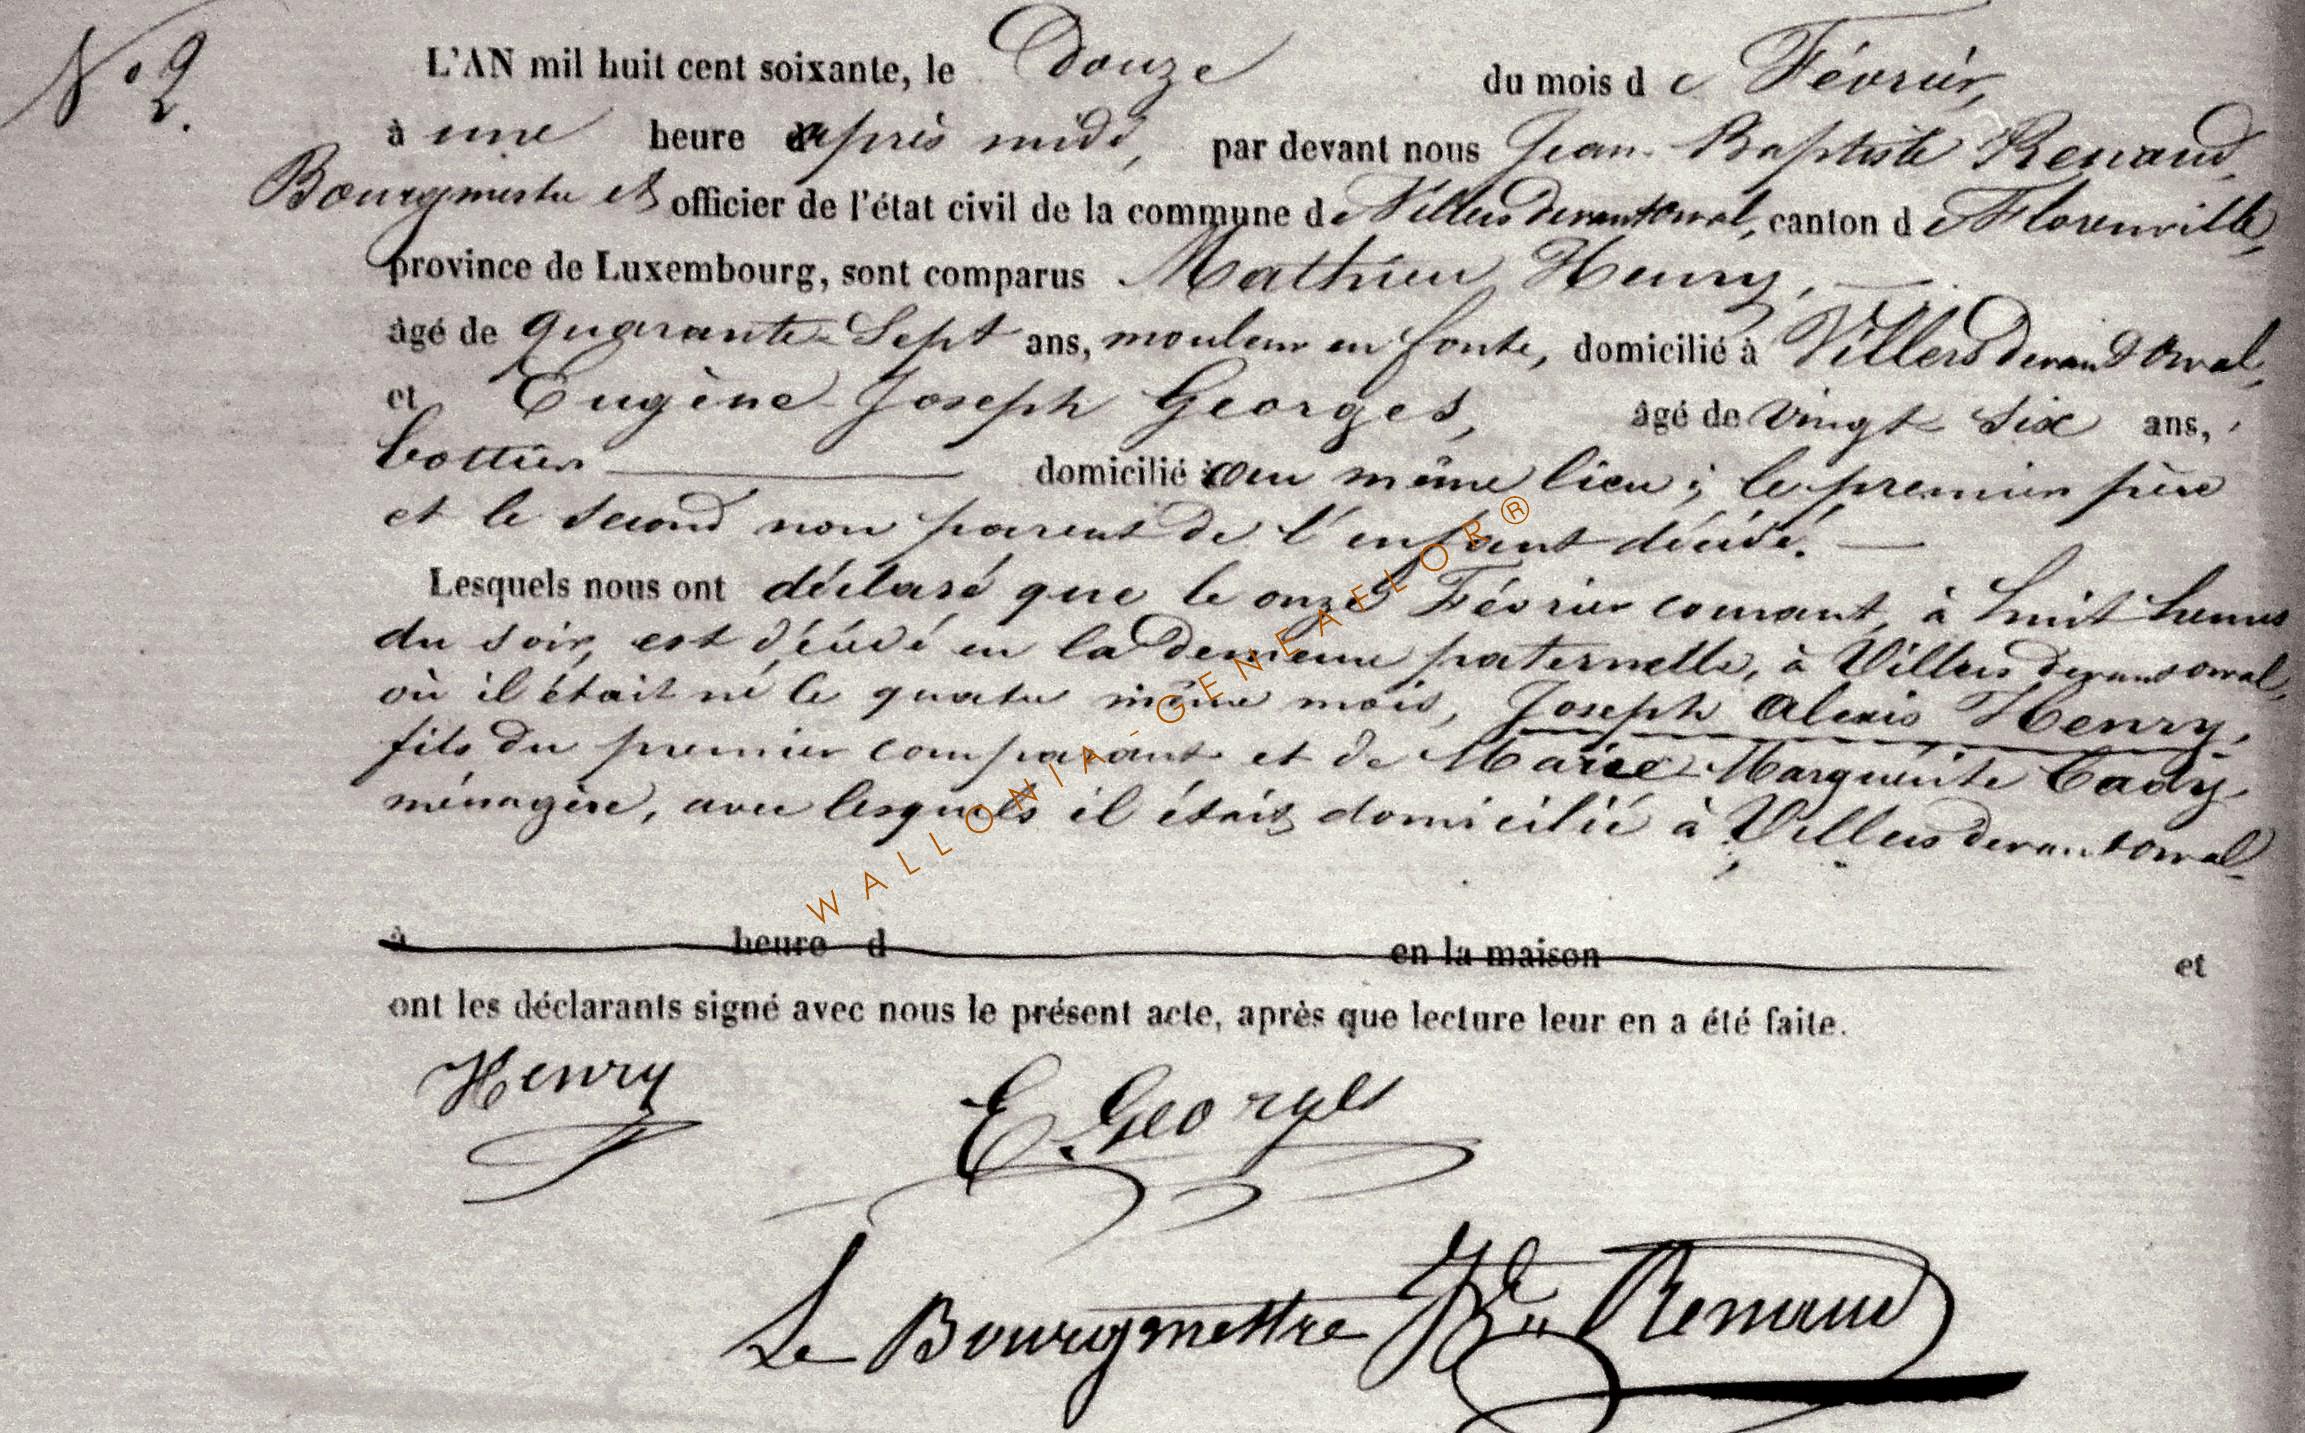 N° 2.
L'AN mil huit cent soixante, le Douze du mois de Février,
à une heure après midi, par devant nous Jean-Baptiste Renaud,
Bourgmestre et officier de l'état civil de la commune de Villers devant orval, canton de Florenville,
province de Luxembourg, sont comparus Mathieu Henry,
âgé de quarante-Sept ans, mouleur en fonte, domicilié à Villers devant Orval,
et Eugène Joseph Georges, âgé de vingt Six ans,
bottier domicilié au même lieu; le premier père
et le second non parent de l'enfant décédé.
Lesquels nous ont déclaré que le onze Février courant, à huit heures
du soir, est décédé en la demeure paternelle, à Villers devant orval,
où il était né le quatre même mois, Joseph Alexis Henry,
fils du premier comparant et de Marie Marguerite Cady,
ménagère, avec lesquels il était domicilié à Villers devant orval.
à heure d en la maison et
ont les déclarants signé avec nous le présent acte, après que lecture leur en a été faite.
Henry
E. Georges
Le Bourgmestre JBte Renaud
WALLONIA-GENEAFLOR®